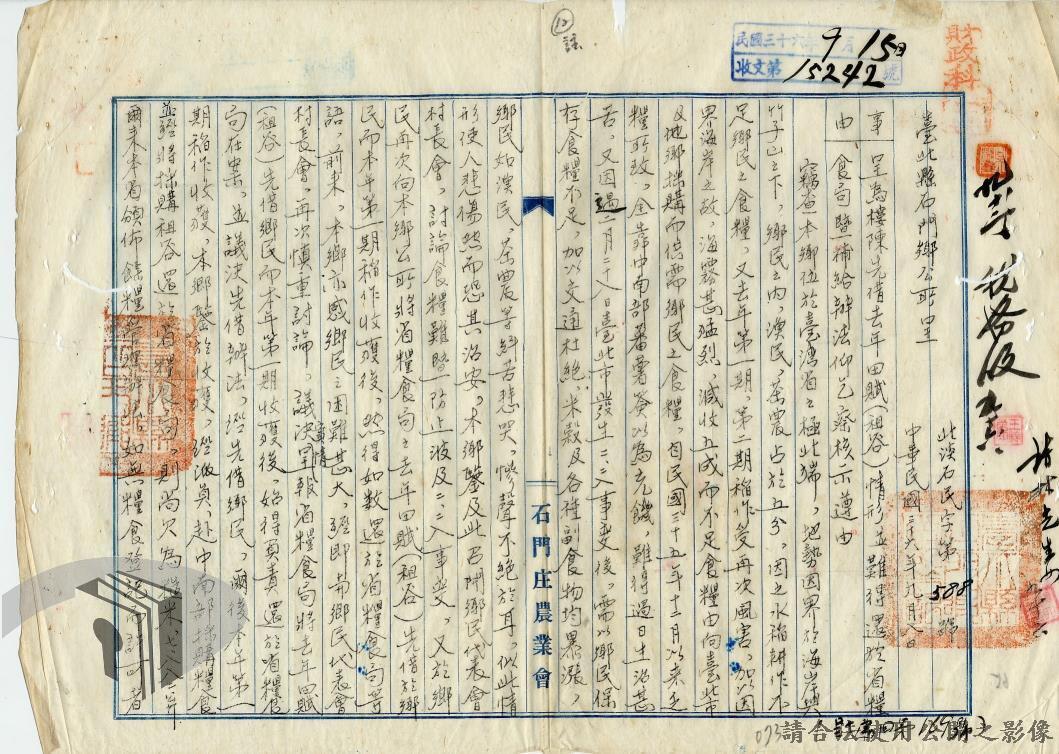 註
民國三十六年9月15日
收文第15242號
財政科
臺北縣石門鄉公所呈
北淡石民字第588號
中華民國三十六年九月八日
事 呈為樓陳先借去年田賦(租谷)情形並難得還於省糧
由 食局暨補給辦法仰乞察核示遵由
竊查本鄉位於臺灣省之極北端,地勢因界於海岸與
竹子山之下,鄉民之內,漁民、茶農占於五分,因之水稻耕作不
足鄉民之食糧,又去年第一期,第二期稻作受再次風害,加以因
界海岸之故,海霧甚猛烈,減收五成而不足食糧由向臺北市
及他鄉採購而供需鄉民之食糧,自民國三十五年十二月以來乏
糧所致,全靠中南部蕃薯簽以為充饑,難得過日生活甚
苦,又因過二月二十八日臺北市發生二、二八事變後,需以鄉民保
存食糧不足,加以交通杜絕,米穀及各種副食物均暴漲,
鄉民如漁民、茶農等終苦悲哭,慘聲不絕於耳,似此情
形使人悲傷然而恐其治安,本鄉鑒及此召開鄉民代表會
村長會,討論食糧難暨防止波及二、二八事變,又於鄉
民再次向本鄉公所將省糧食局之去年田賦(租谷)先借於鄉
民而本年第一期稻作收獲後,然得如數還於省糧食局等
語,前來,本鄉亦感鄉民之困難甚大,經即召鄉民代表會
村長會,再次慎重討論,議決呈報省糧食局將去年田賦
(租谷)先借鄉民而本年第一期收獲後,始得負責還於省糧食
局在案,並議決先借辦法,經先借鄉民,爾後本年第一
期稻作收獲,本鄉鑒於收獲,經派員赴中南部採購糧食
並經將採購租谷還於省糧食局,則尚欠為糙米
爾來本省頒佈餘糧管理辦法,如無糧食登記而許可者
石門庄農業會
請合法使用公開之影像